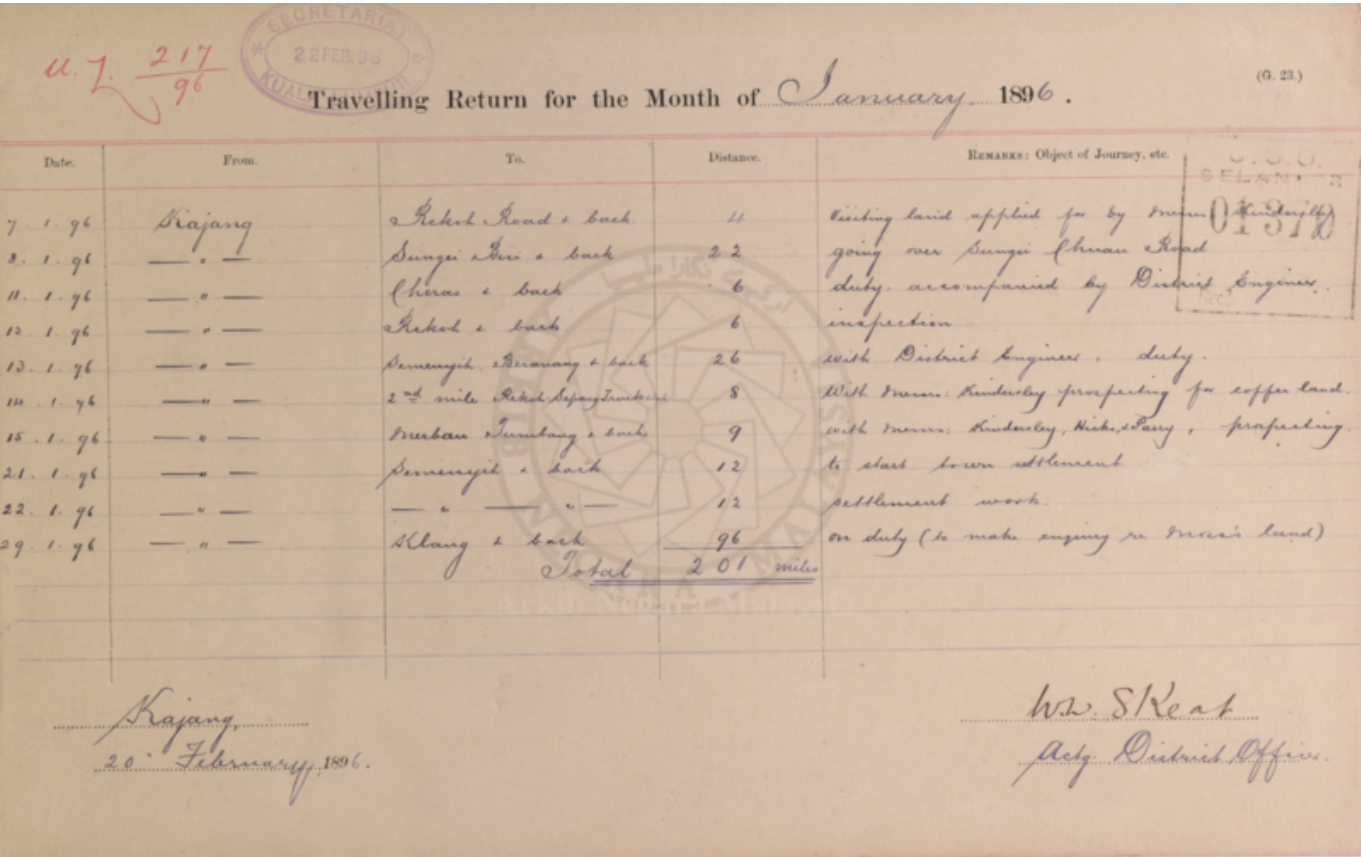 U. L. 217/96
SECRETARIAT
22 FEB. 96
KUALA
(G. 23.)
Travelling Return for the Month of January 1896.
Date. From. To. Distance. REMARKS: Object of Journey, etc.
SELANGOR
01370
7. 1. 96 Kajang Rekoh Road & back 4 Visiting land applied for by Messrs Kindersley
8. 1. 96 — " — Sungei Besi & back 22 going over Sungei Chuau Road
11. 1. 96 — " — Cheras & back 6 duty. accompanied by District Engineer.
12. 1. 96 — " — Rekoh & back 6 inspection
13. 1. 96 — " — Semenyih, Beranang & back 26 with District Engineer. duty.
14. 1. 96 — " — 2nd mile Rekoh Sepang Trace 8 With Messrs: Kindersley prospecting for coffee land.
15. 1. 96 — " — Merbau Tumbang & back 9 with Messrs: Kindersley, Hicks, & Parry, prospecting.
21. 1. 96 — " — Semenyih & back 12 to start town settlement
22. 1. 96 — " — — " — " — 12 settlement work.
29. 1. 96 — " — Klang & back 96 on duty (to make enquiry re land)
Total 201 miles
Arkib Negara Malaysia
Kajang,
20 February, 1896.
W.W. Skeat
Actg District Officer.